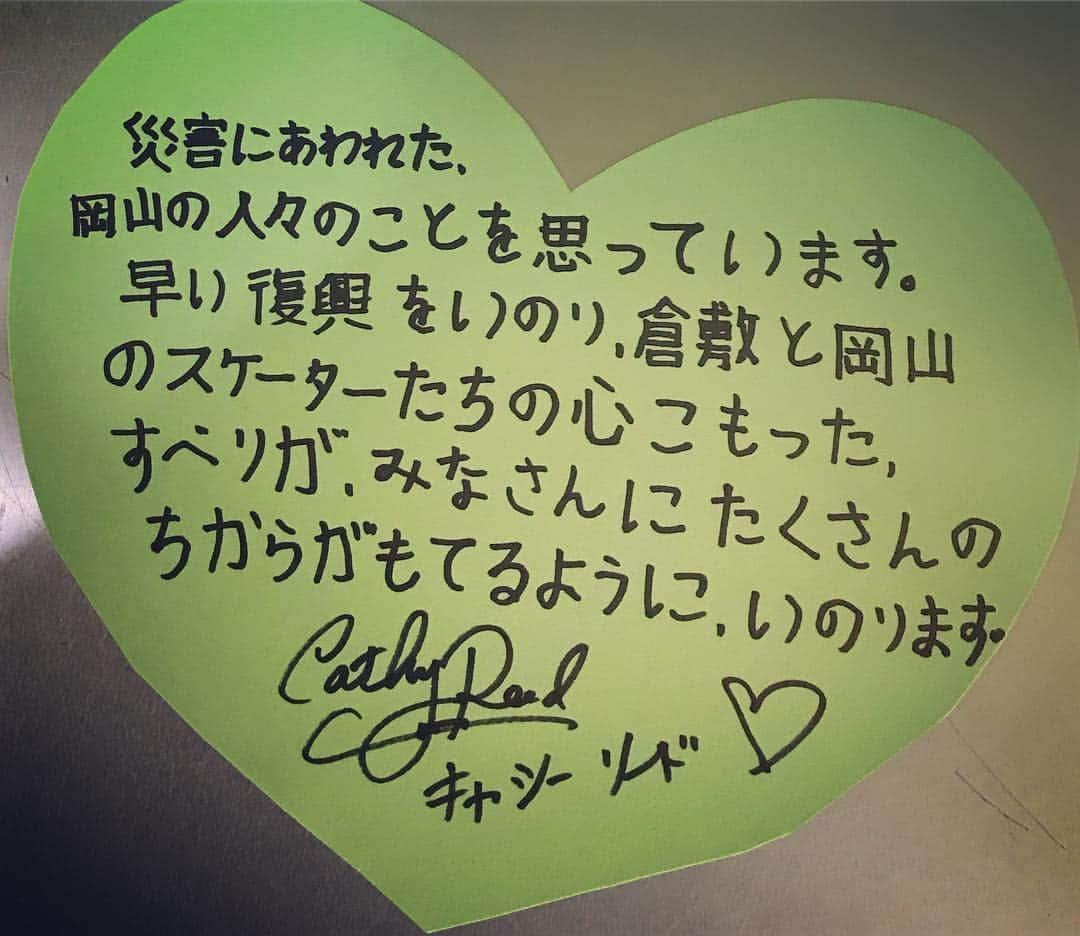 災害にあわれた、
岡山の人々のことを思っています。
早い復興をいのり、倉敷と岡山
のスケーターたちの心こもった、
すべりが、みなさんにたくさんの
ちからがもてるように、いのります。
Cathy Reed
キャシー リード